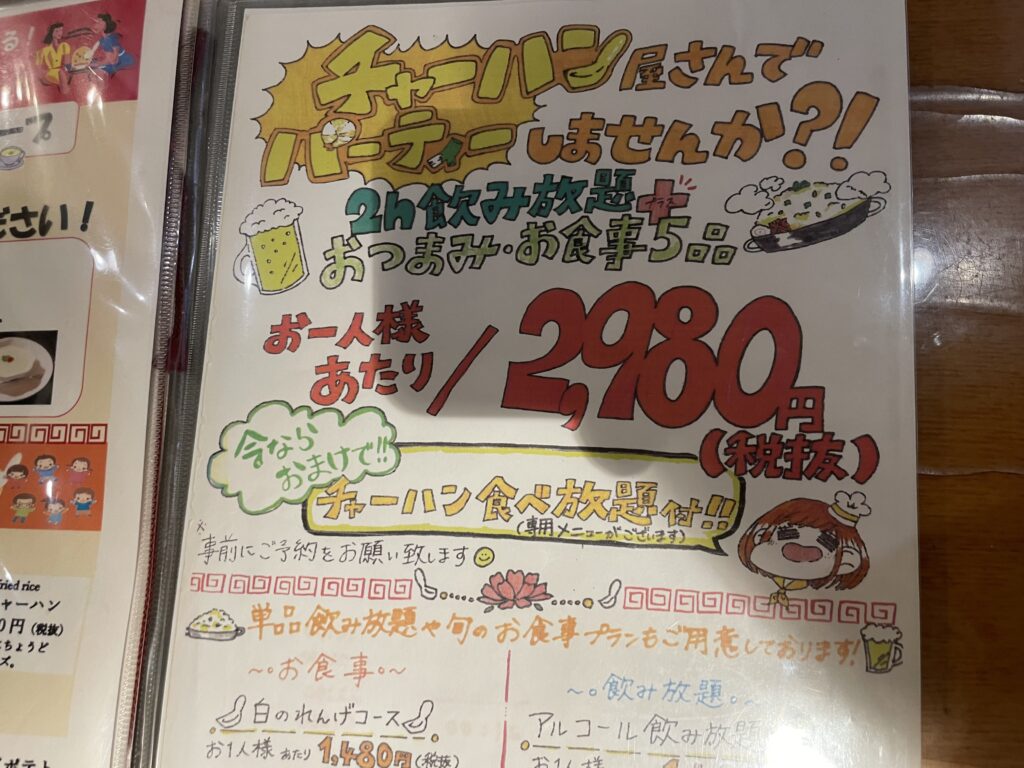 る!
ープ
ださい!
ried rice
チャーハン
0円(税抜)
ちょうど
ズ。
ポテト
チャーハン屋さんで
パーティーしませんか?!
2h飲み放題+プラス
おつまみ・お食事5品
お一人様
あたり/2,980円
(税抜)
今なら
おまけで!!
チャーハン食べ放題付!!
(専用メニューがございます)
※
事前にご予約をお願い致します
単品飲み放題や旬のお食事プランもご用意しております!
~。お食事。~
白のれんげコース
お1人様あたり1,480円(税抜)
~。飲み放題。~
アルコール飲み放題
お1人様